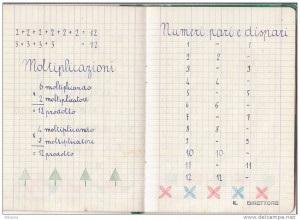 2 + 2 + 2 + 2 + 2 + 2 = 12
3 + 3 + 3 + 3 = 12
Moltiplicazioni
6 moltiplicando
x
2 moltiplicatore
= 12 prodotto
4 moltiplicando
x
3 moltiplicatore
= 12 prodotto
Numeri pari e dispari
1 - 1
2 2 -
3 - 3
4 4 -
5 - 5
6 6 -
7 - 7
8 8 -
9 - 9
10 10 -
11 - 11
12 12 -
IL DIRETTORE